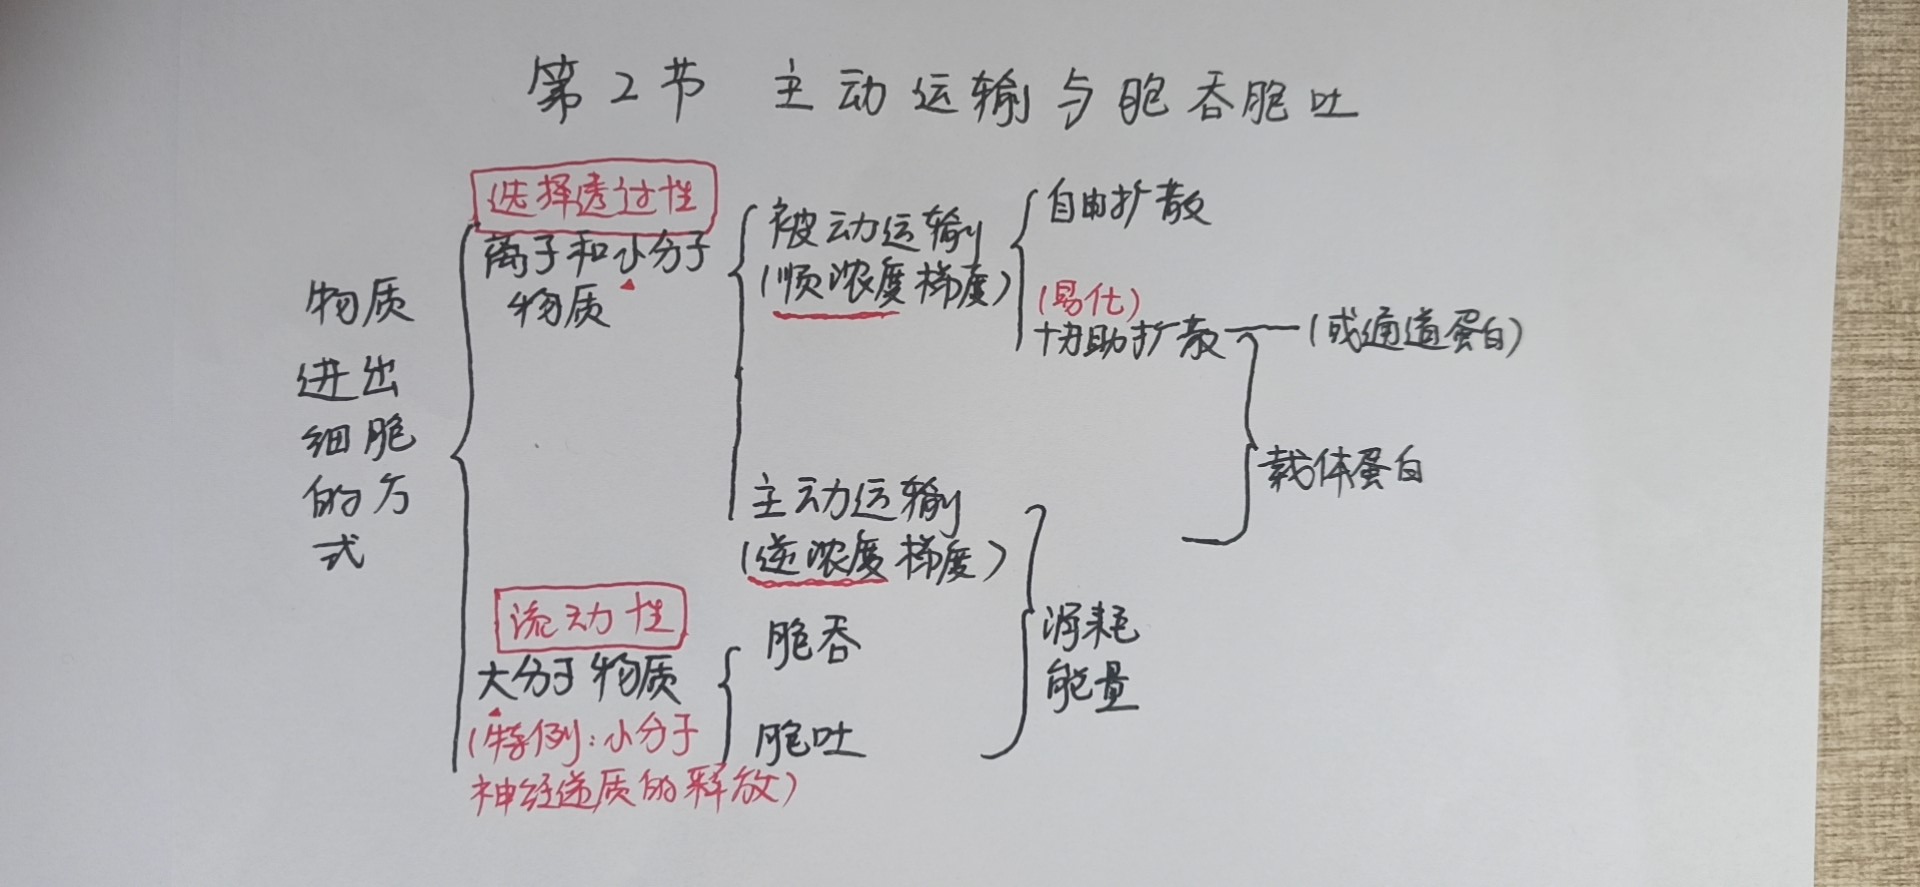 第2节 主动运输与胞吞胞吐
物质
进出
细胞
的方
式
选择透过性
离子和小分子
物质
被动运输
(顺浓度梯度)
自由扩散
(易化)
协助扩散
(或通道蛋白)
载体蛋白
主动运输
(逆浓度梯度)
流动性
大分子物质
(特例:小分子
神经递质的释放)
胞吞
胞吐
消耗
能量